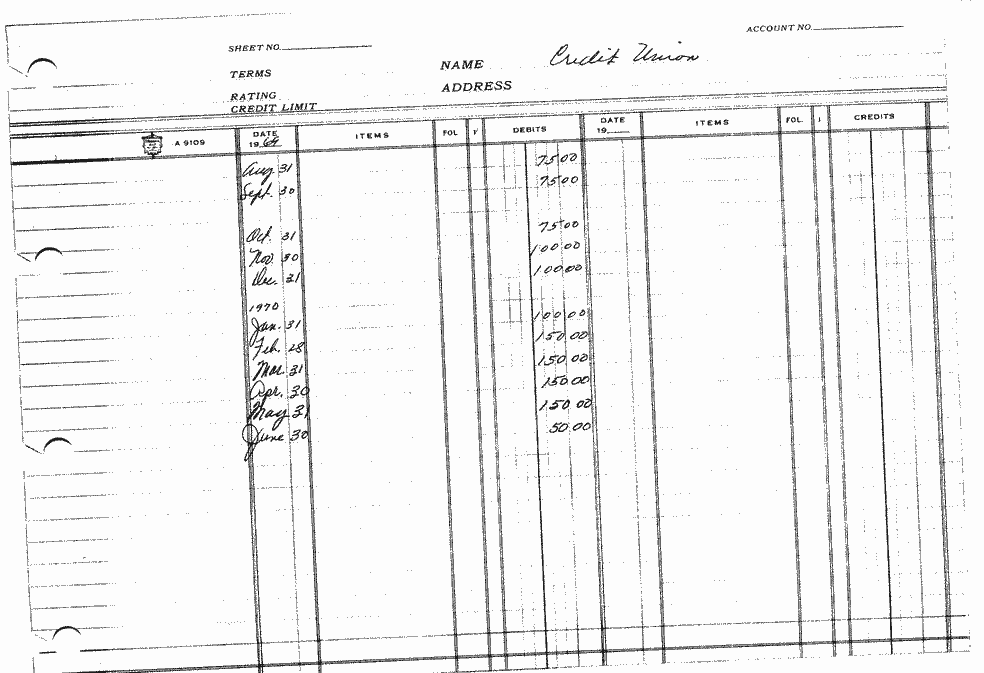 ACCOUNT NO.
SHEET NO.
NAME Credit Union
TERMS
ADDRESS
RATING
CREDIT LIMIT
A 9109 DATE 1969 ITEMS FOL. √ DEBITS DATE 19 ITEMS FOL. √ CREDITS
Aug 31 75 00
Sept. 30 75 00
Oct. 31 75 00
Nov. 30 100 00
Dec. 31 100 00
1970
Jan. 31 100 00
Feb. 28 150 00
Mar. 31 150 00
Apr. 30 150 00
May 31 150 00
June 30 50 00